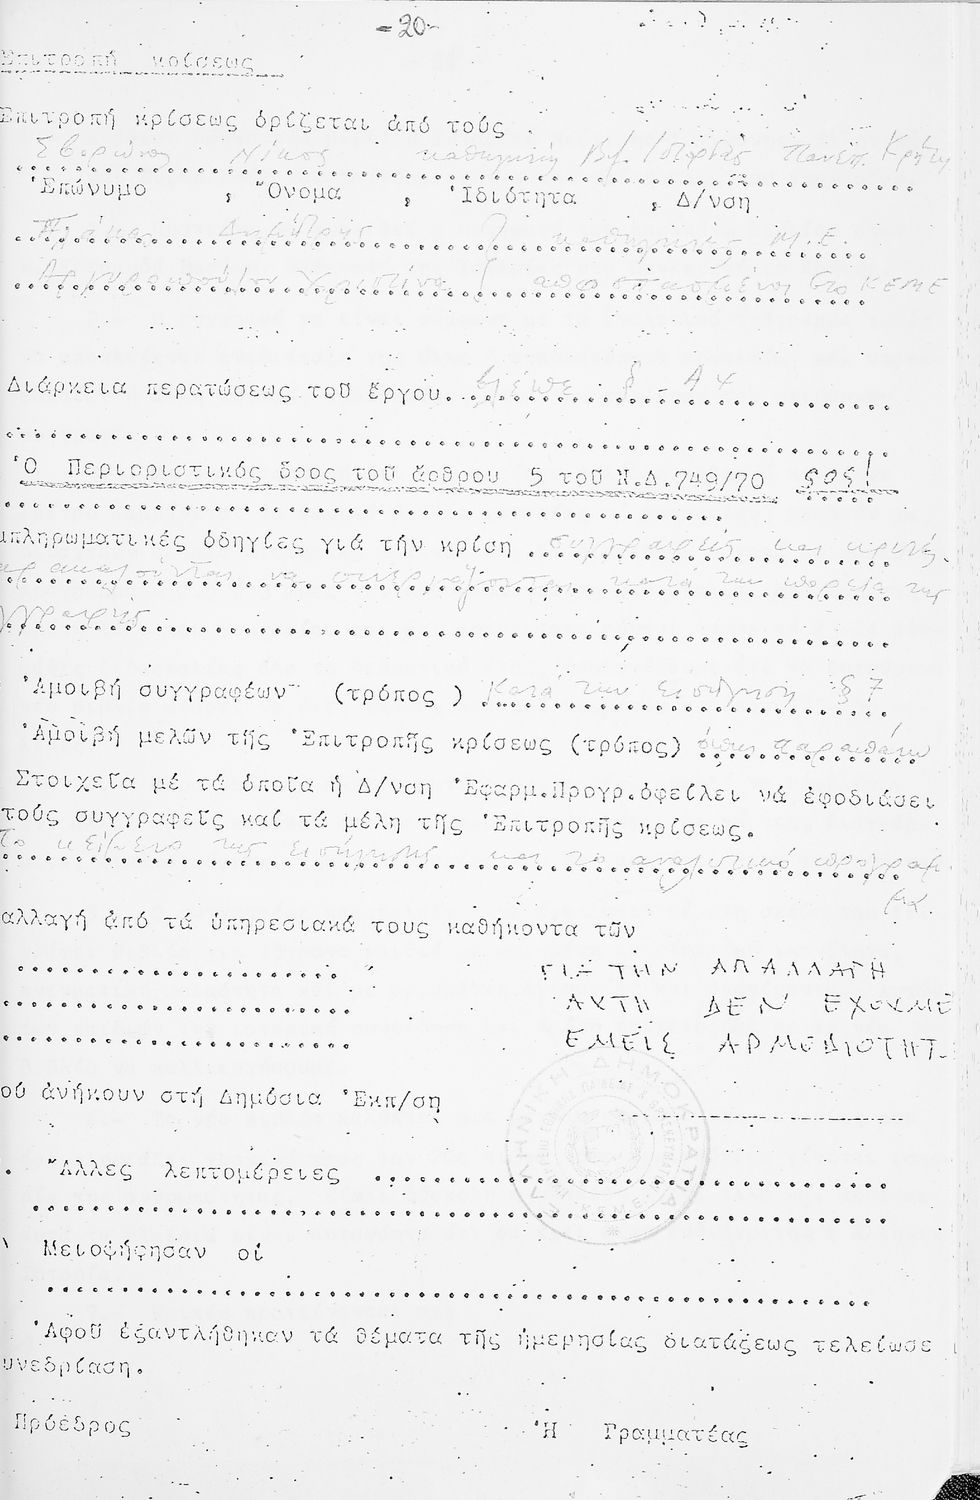 -20-
Επιτροπή κρίσεως
Επιτροπή κρίσεως ὁρίζεται ἀπό τούς
Σβορώνος Νίκος καθηγητής Βυζ. Ιστορίας Πανεπ. Κρήτης
Ἐπώνυμο , Ὄνομα , Ἰδιότητα , Δ/νση
Δημήτρης καθηγητές Μ.Ε.
Αργυροπούλου Χριστίνα αποσπασμένοι στο ΚΕΜΕ
Διάρκεια περατώσεως τοῦ ἔργου. βλέπε § - Α4
Ὁ Περιοριστικός ὅρος τοῦ ἄρθρου 5 τοῦ Ν.Δ.749/70
μπληρωματικές ὁδηγίες γιά τήν κρίση συγγραφείς και κριτές
αρακαλούνται να συνεργάζονται κατά την πορεία της
γγραφής
Ἀμοιβή συγγραφέων (τρόπος ) Κατά την εισήγηση § 7
Ἀμοιβή μελῶν τῆς Ἐπιτροπῆς κρίσεως (τρόπος) όπως παραπάνω
Στοιχεῖα μέ τά ὁποῖα ἡ Δ/νση Ἐφαρμ.Προγρ.ὀφείλει νά ἐφοδιάσει
τούς συγγραφεῖς καί τά μέλη τῆς Ἐπιτροπῆς κρίσεως.
Το κείμενο της εισήγησης και το αναλυτικό πρόγραμ-
μα.
αλλαγή ἀπό τά ὑπηρεσιακά τους καθήκοντα τῶν
ΓΙΑ ΤΗΝ ΑΠΑΛΛΑΓΗ
ΑΥΤΗ ΔΕΝ ΕΧΟΥΜΕ
ΕΜΕΙΣ ΑΡΜΟΔΙΟΤΗΤ.
ού ἀνήκουν στή Δημόσια Ἐκπ/ση
ΕΛΛΗΝΙΚΗ ΔΗΜΟΚΡΑΤΙΑ
. Ἄλλες λεπτομέρειες
Μειοψήφησαν οἱ
Ἀφοῦ ἐξαντλήθηκαν τά θέματα τῆς ἡμερησίας διατάξεως τελείωσε
υνεδρίαση.
Πρόεδρος Ἡ Γραμματέας